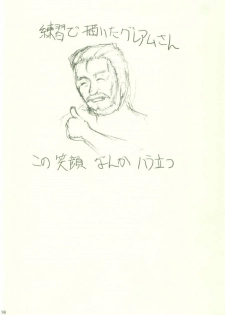 練習で描いたグレアムさん
この笑顔 なんか ハラ立つ